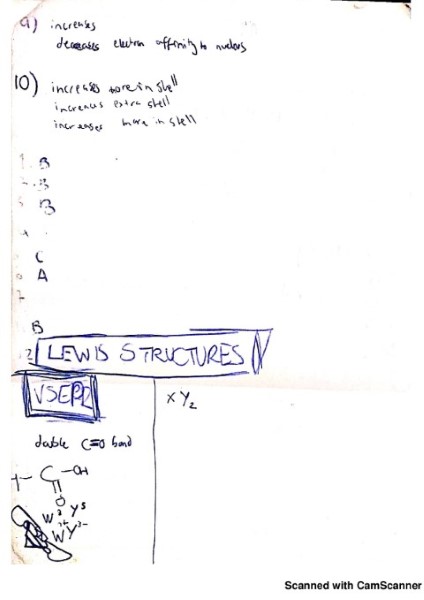 9) increases
decreases electron affinity to nucleus
10) increases more in shell
increases extra shell
increases more in shell
1. B
2. B
3 B
C
A
7
B
LEWIS STRUCTURES
VSEPR
XY2
double C=O bond
C-OH
O
W3 Y5
W Y
Scanned with CamScanner